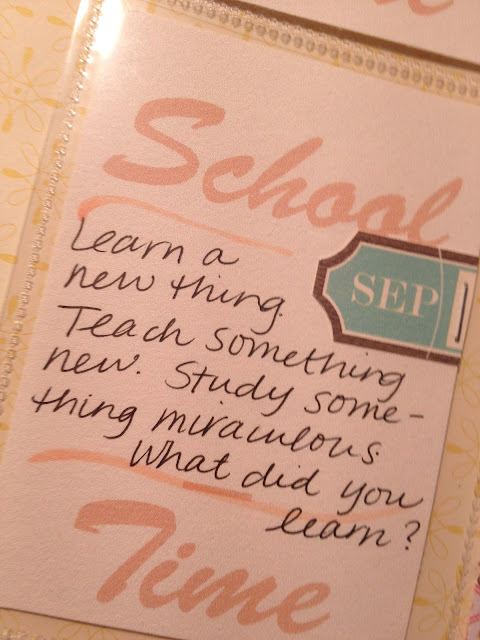 School
SEP
Learn a
new thing.
Teach something
new. Study some-
thing miraculous.
What did you
learn?
Time